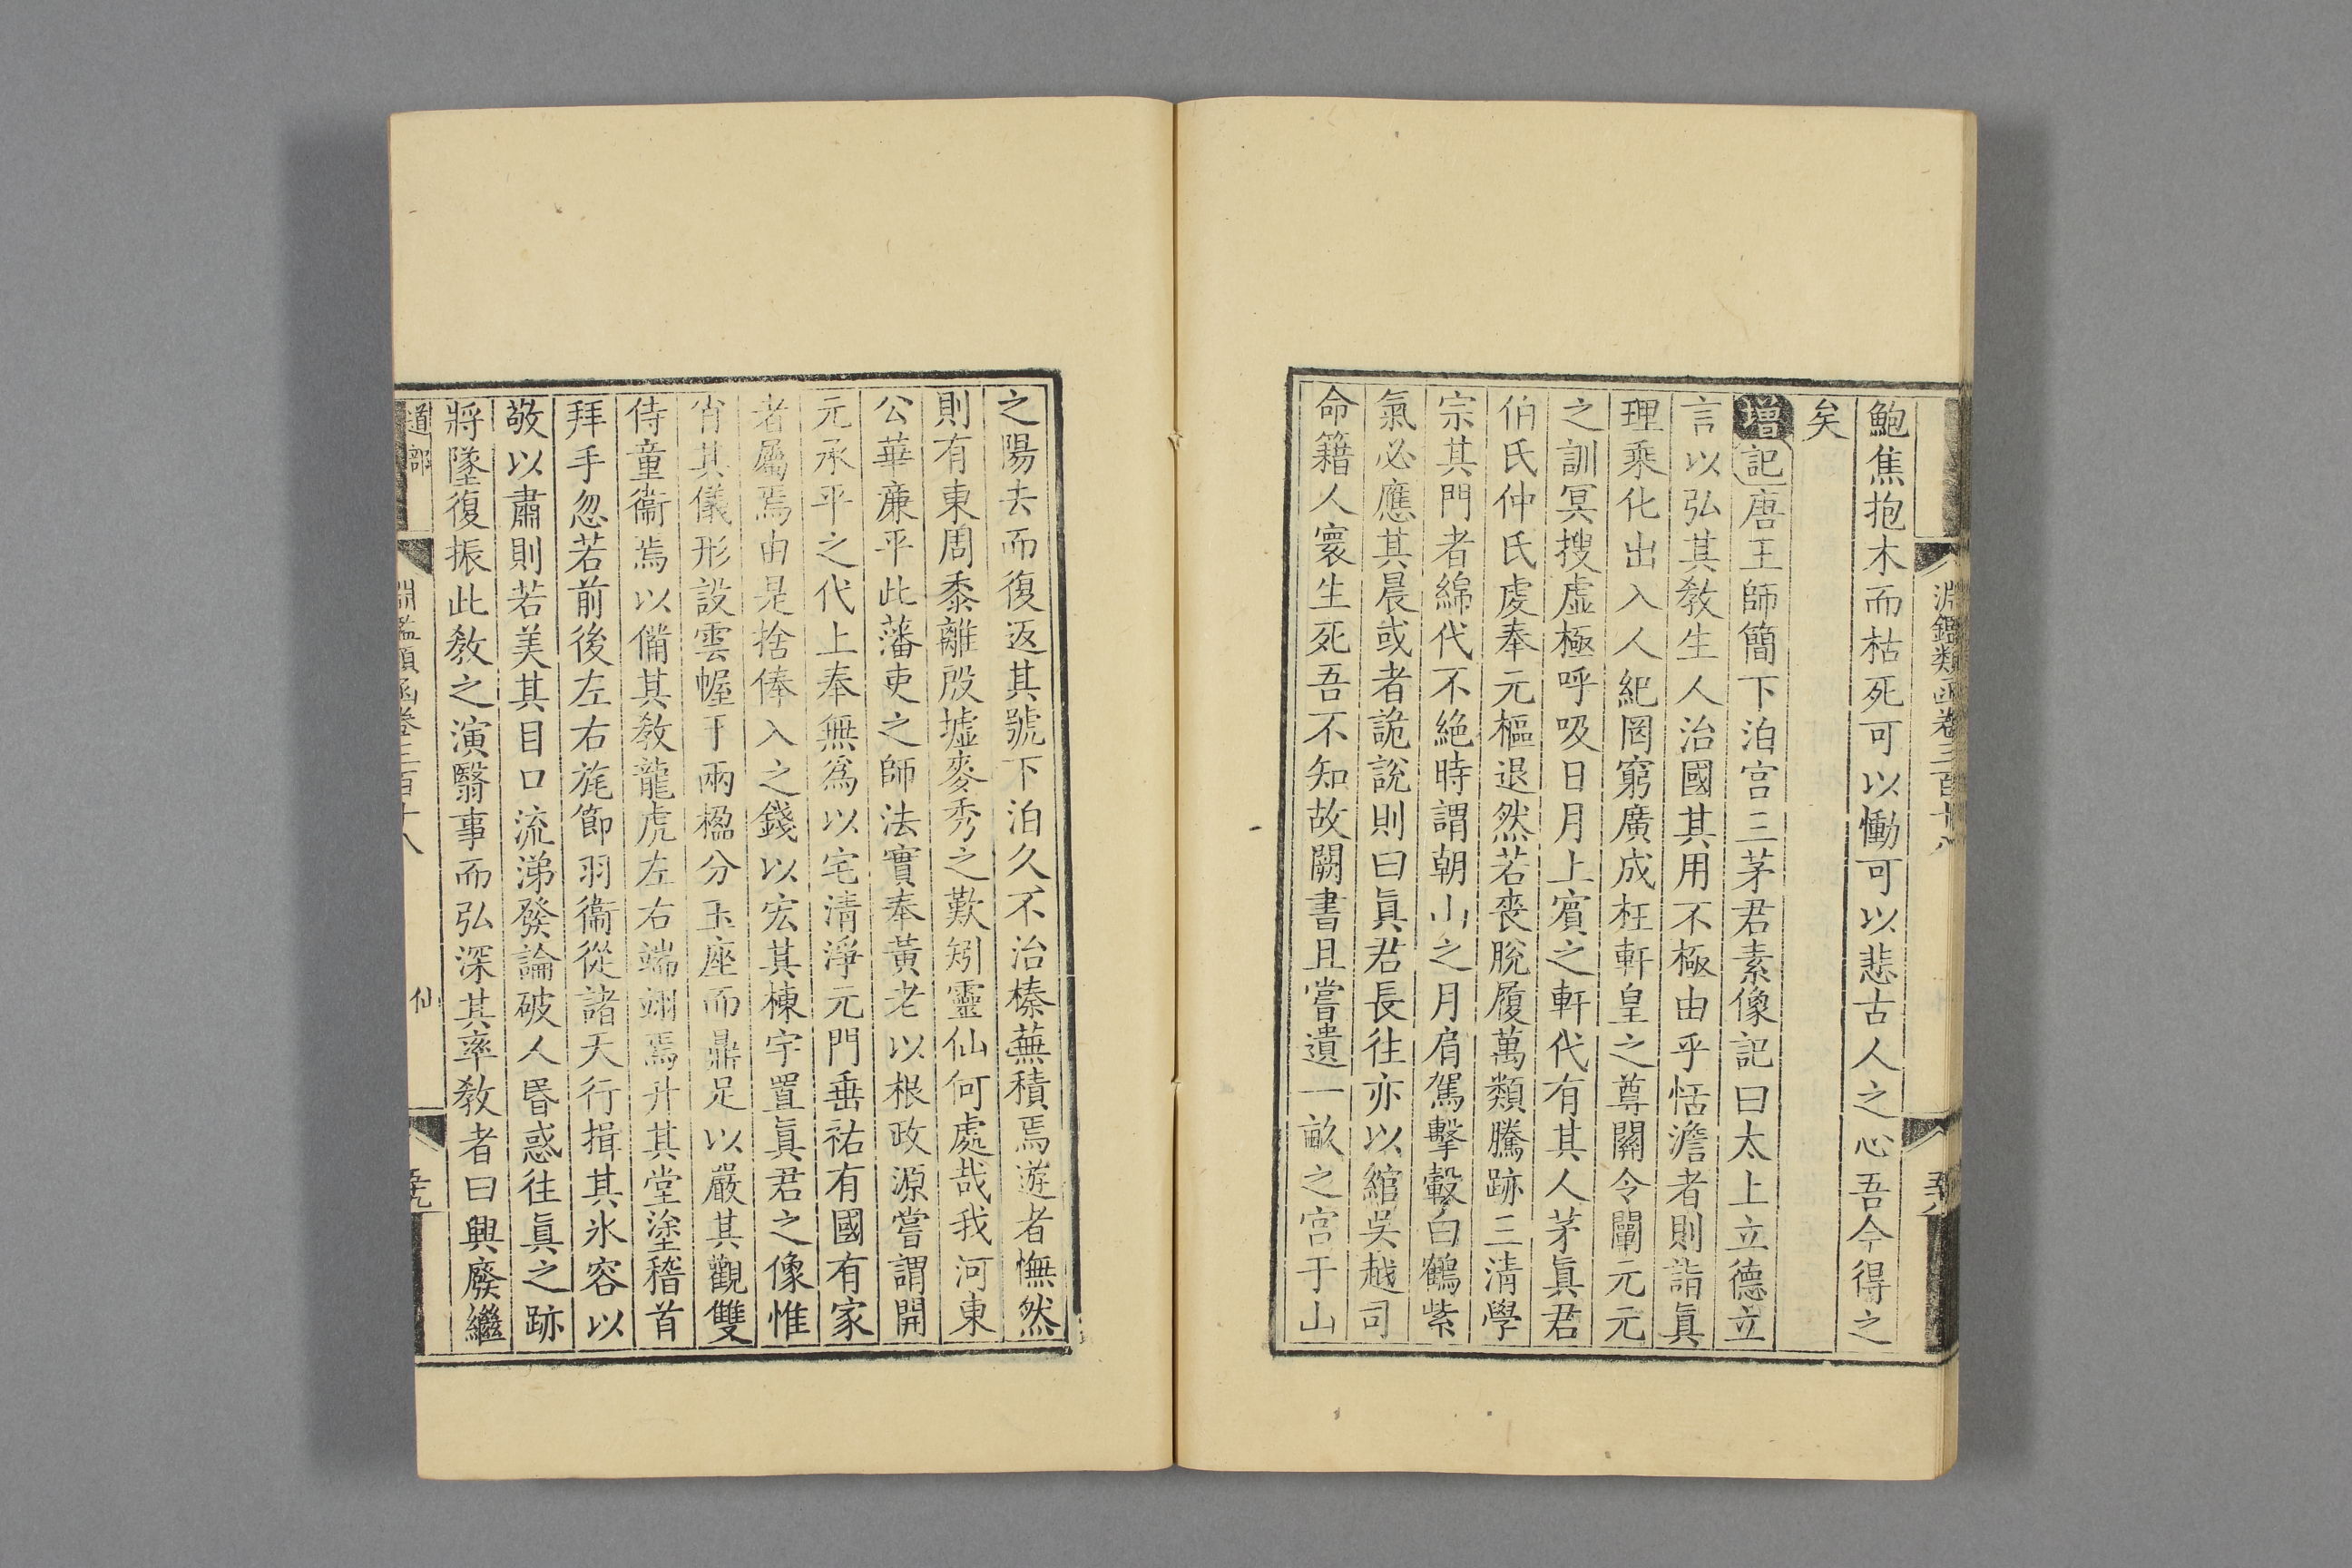 淵鑑類函卷三百十八
鮑焦抱木而枯死可以慟可以悲古人之心吾今得之
矣
增記唐王師簡下泊宮三茅君素像記曰太上立德立
言以弘其敎生人治國其用不極由乎恬澹者則詣眞
理乘化出入人紀罔窮廣成枉軒皇之尊關令闡元元
之訓冥搜虛極呼吸日月上賓之軒代有其人茅眞君
伯氏仲氏處奉元樞退然若喪脫履萬類騰跡三清學
宗其門者綿代不絕時謂朝山之月肩駕擊轂白鶴紫
氣必應其晨或者詭說則曰眞君長往亦以綰吳越司
命籍人寰生死吾不知故闕書且嘗遺一畝之宮于山
之陽去而復返其號下泊久不治榛蕪積焉遊者憮然
則有東周黍離殷墟麥秀之歎矧靈仙何處哉我河東
公華廉平此藩吏之師法實奉黃老以根政源嘗謂開
元承平之代上奉無爲以宅清淨元門垂祐有國有家
者屬焉由是捨俸入之錢以宏其棟宇置眞君之像惟
肖其儀形設雲幄于兩楹分玉座而鼎足以嚴其觀雙
侍童衞焉以備其敎龍虎左右端翊焉升其堂塗稽首
拜手忽若前後左右旄節羽衞從諸天行揖其氷容以
敬以肅則若美其目口流涕發論破人昬惑往眞之跡
將墜復振此敎之演翳事而弘深其率敎者曰興廢繼
道部
淵鑑類函卷三百十八
仙